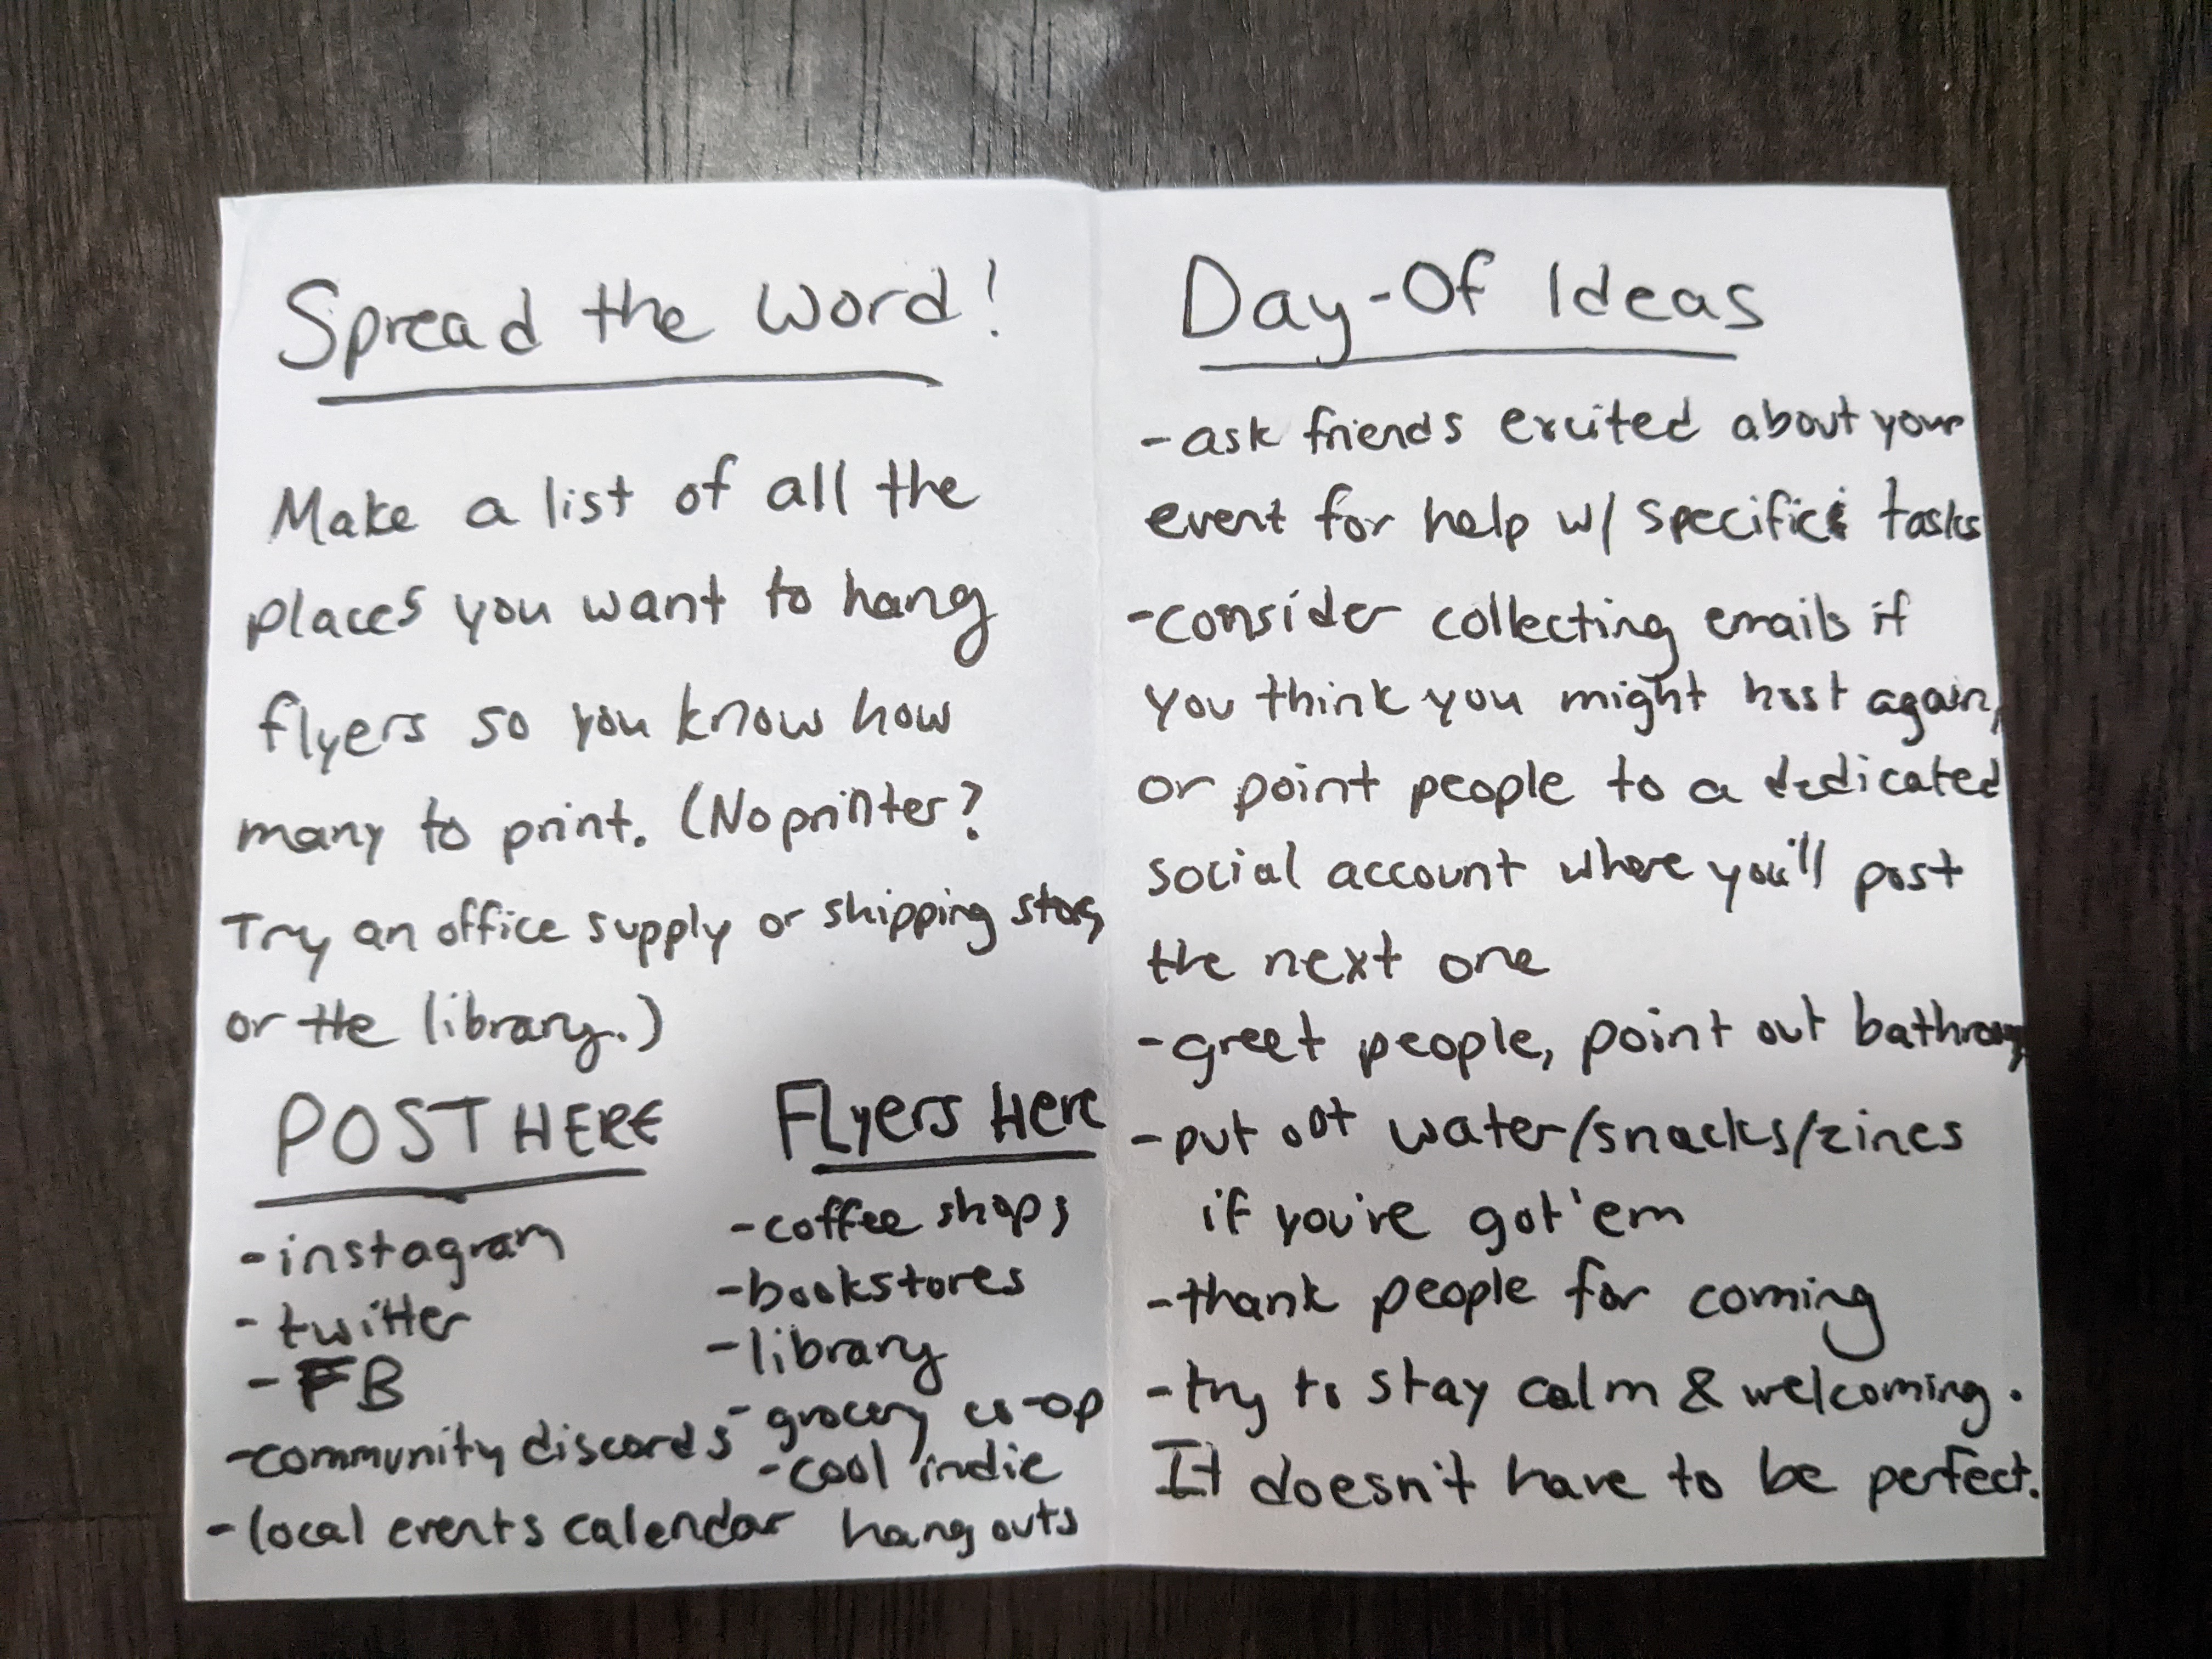 Spread the word!
Make a list of all the
places you want to hang
flyers so you know how
many to print. (No printer?
Try an office supply or shipping store,
or the library.)
POST HERE
- instagram
- twitter
- FB
- community discords
- local events calendar
Flyers Here
- coffee shops
- bookstores
- library
- grocery co-op
- cool indie
hang outs
Day-Of Ideas
- ask friends excited about your
event for help w/ specific tasks
- consider collecting emails if
you think you might host again,
or point people to a dedicated
social account where you'll post
the next one
- greet people, point out bathroom
- put out water/snacks/zines
if you've got 'em
- thank people for coming
- try to stay calm & welcoming.
It doesn't have to be perfect.